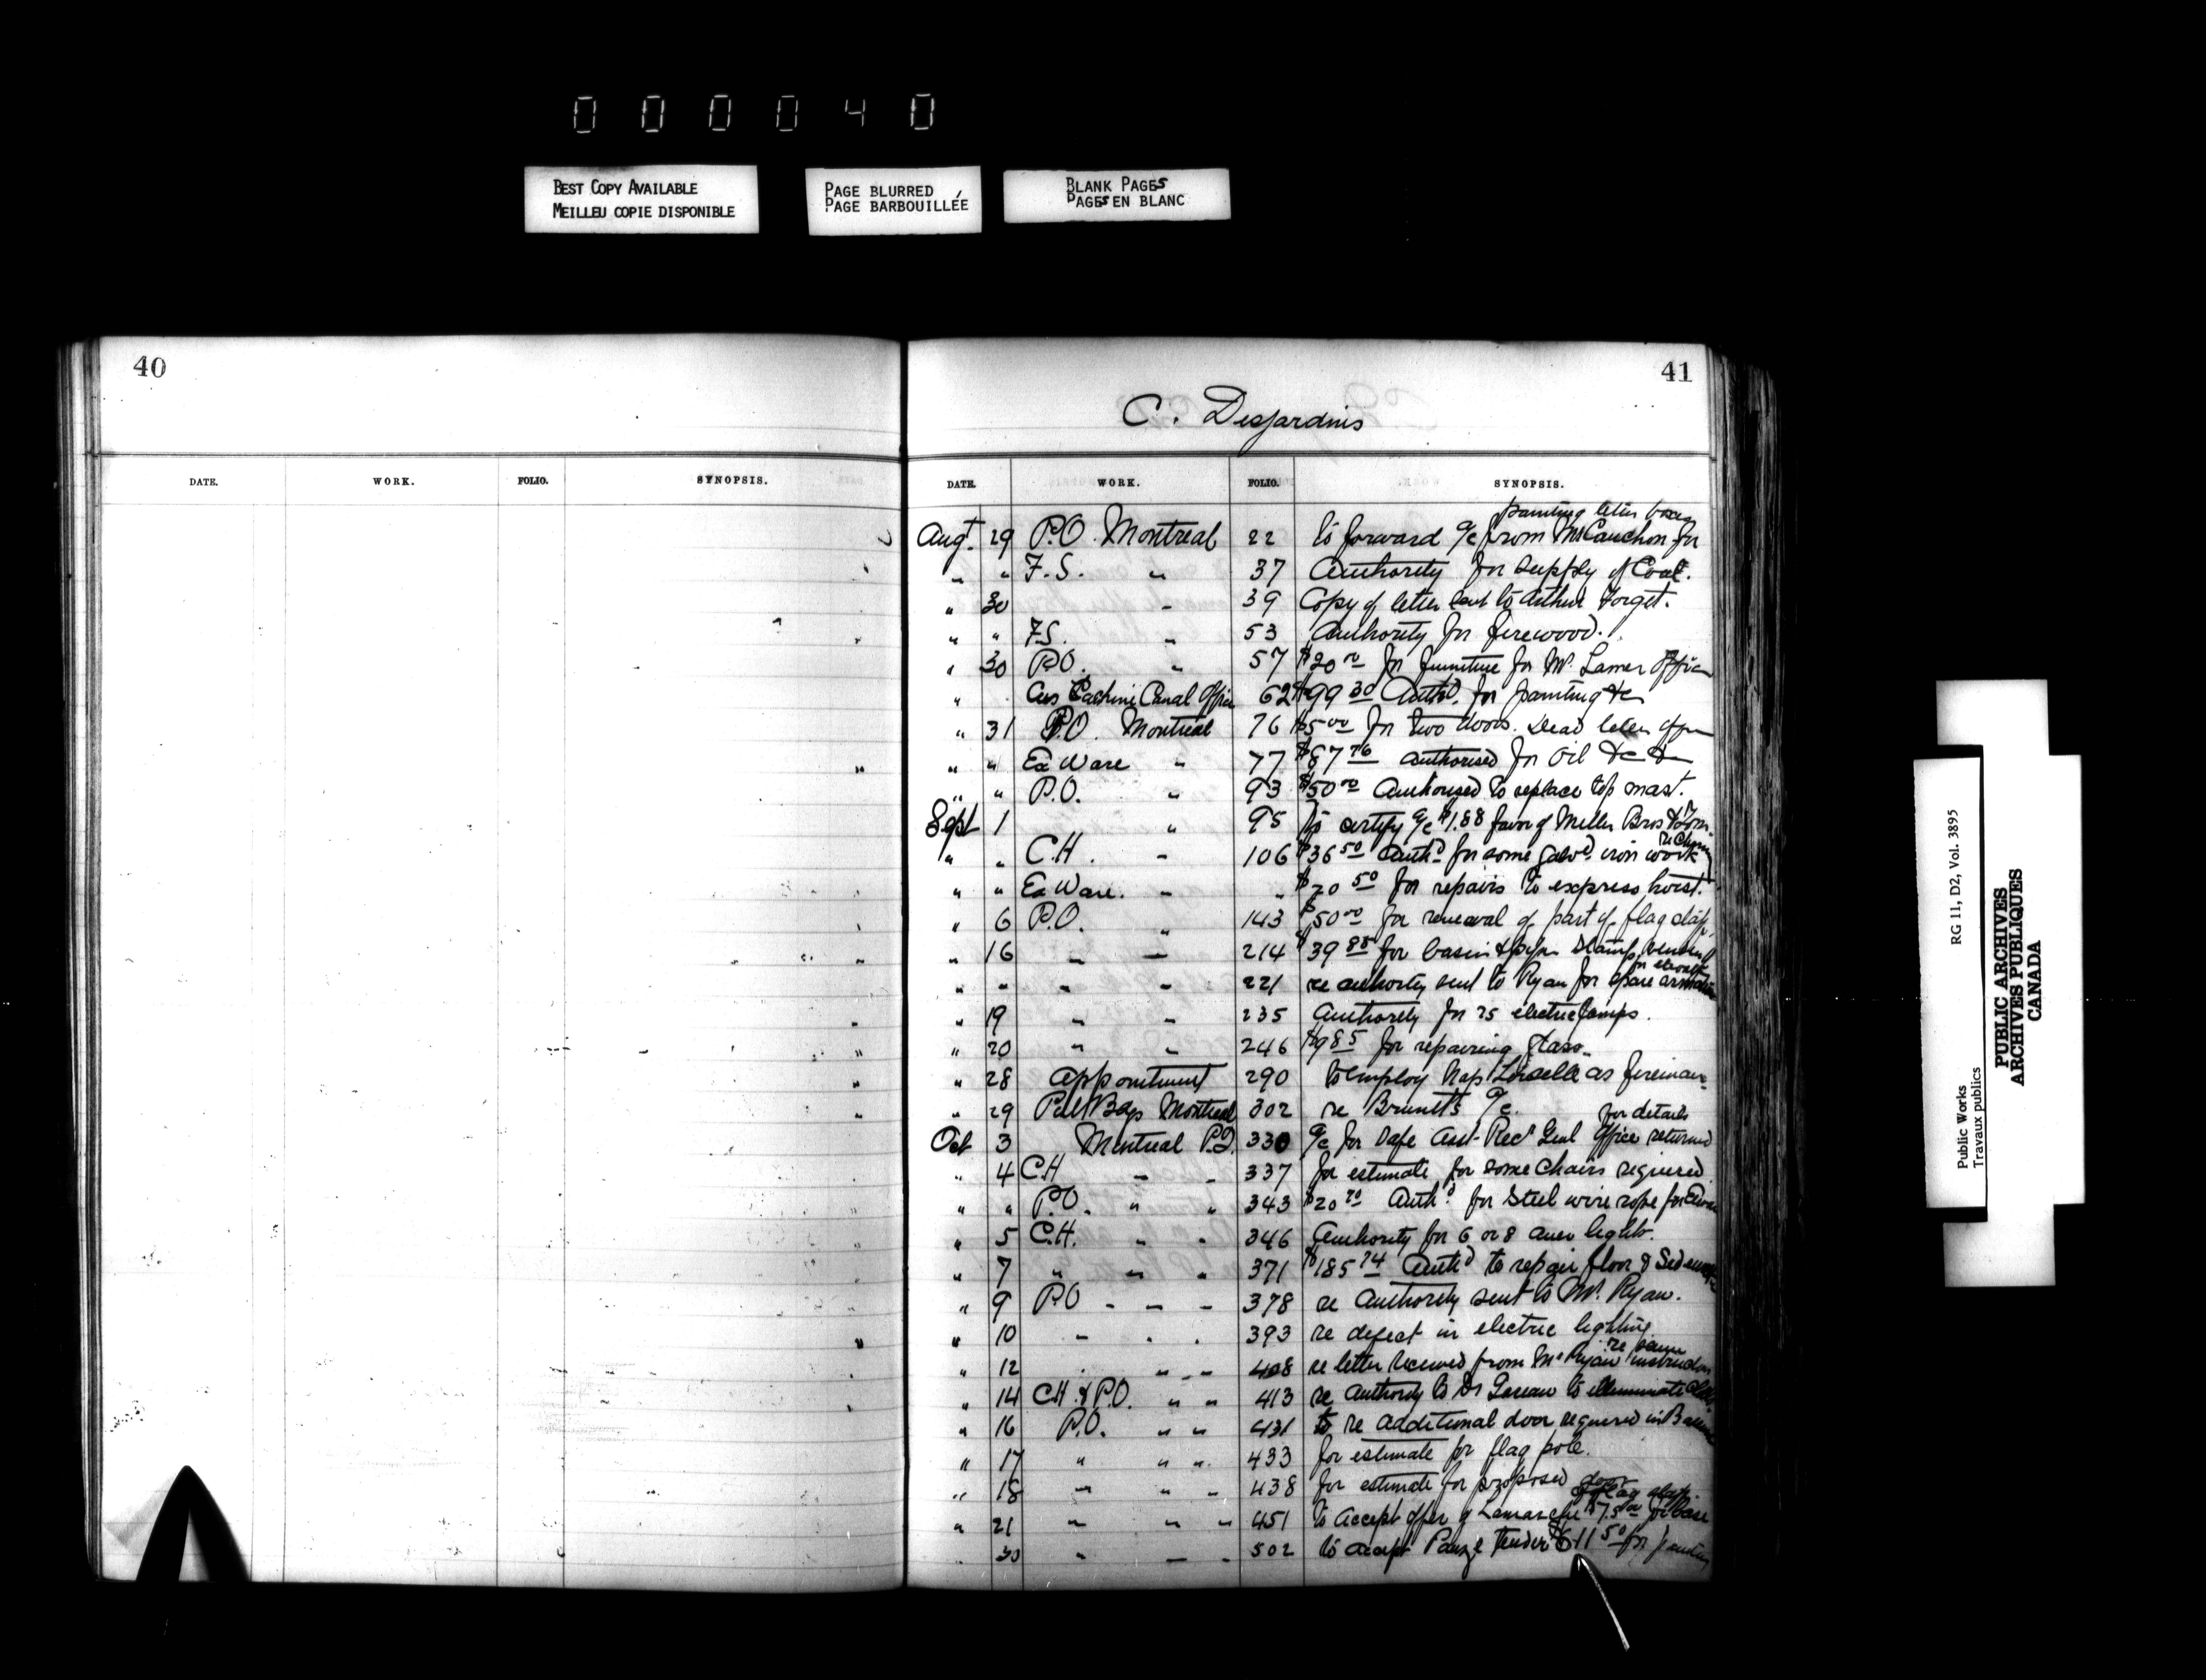 000040
BEST COPY AVAILABLE
MEILLEU COPIE DISPONIBLE
PAGE BLURRED
PAGE BARBOUILLÉE
BLANK PAGES
PAGES EN BLANC
40
DATE. WORK. FOLIO. SYNOPSIS.
41
C. Desjardins
DATE. WORK. FOLIO. SYNOPSIS.
painting letter boxes
Augt. 29 P.O. Montreal 22 to forward a/c from Mr Cauchon for
" " F.S. " 37 Authority for supply of Coal.
" 30 " 39 Copy of letter sent to Arthur Forget.
" " F.S. " 53 Authority for firewood.
" 30 P.O. " 57 $20 00 for furniture for Mr. Lamer Office
" Lachine Canal Office 62 $99 30 Authd. for painting &c
" 31 P.O. Montreal 76 $5 00 for two doors. Dead letter
" " Ex Ware " 77 $87 76 authorised for oil &c &c
" " P.O. " 93 $50 00 Authorised to replace top mast.
Sept 1 " 95 To certify a/c $1.88 favor of Miller Bros &
" " C.H. " 106 $36 50 Authd for some galvd. iron work
" " Ex Ware. " " $20 50 for repairs to express hoist.
" 6 P.O. " 143 $50 00 for renewal of part of flag staff
" 16 " " 214 $39 88 for basin & stamp
" " " " 221 re authority sent to Ryan for spare
" 19 " " 235 Authority for 25 electric lamps.
" 20 " " 246 $9 85 for repairing glass
" 28 Appointment 290 to employ Nap Loiselle as fireman
" 29 Pub Bdgs Montreal 302 re Brunet's a/c.
for details
Oct 3 Montreal P.Q. 330 a/c for Safe Asst Recr Genl Office returned
" 4 C.H " " 337 for estimate for some chairs required
" " P.O. " " 343 $20 70 Authd. for steel wire rope for
" 5 C.H. " " 346 Authority for 6 or 8 auer lights.
" 7 " " " 371 $185 74 Authd to repair floor &
" 9 P.O " " " 378 re Authority sent to Mr. Ryan.
" 10 " " " 393 re defect in electric lighting
re same
" 12 " " " 408 re letter received from Mr Ryan instruction
" 14 C.H. & P.O. " " 413 re authority to Dr Gareau to illuminate
" 16 P.O. " " 431 re additional door required in
" 17 " " " 433 for estimate for flag pole.
" 18 " " " 438 for estimate for proposed door
of flag
" 21 " " " 451 to accept offer of Lamarche $75 00 for base
" 30 " " " 502 to accept Pauzé tender $611 50 for
RG 11, D2, Vol. 3895
Public Works
Travaux publics
PUBLIC ARCHIVES
ARCHIVES PUBLIQUES
CANADA